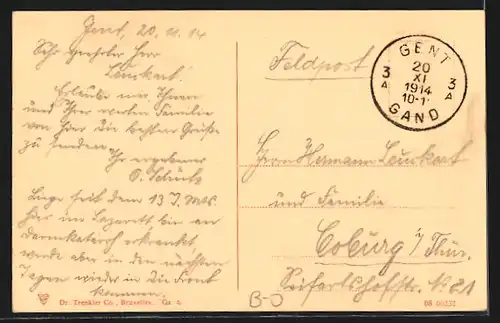 Gent, 20.11.14
Sehr geehrter Herr
Leuckart!
Erlaube mir, Ihnen
und Ihrer werten Familie
von hier die besten Grüße
zu senden.
Ihr ergebener
O. Schütz
Liege seit dem 13 d. Mts.
hier im Lazarett bin an
Darmkatarrh erkrankt,
werde aber in den nächsten
Tagen wieder in die Front
kommen.
Dr. Trenkler Co., Bruxelles. Ga. 4.
Feldpost
GENT
3 20 3
XI
1914
10-1
GAND
Herrn Hermann Leuckart
und Familie
Coburg i/ Thür.
Seifartshofstr. No. 21
B-O